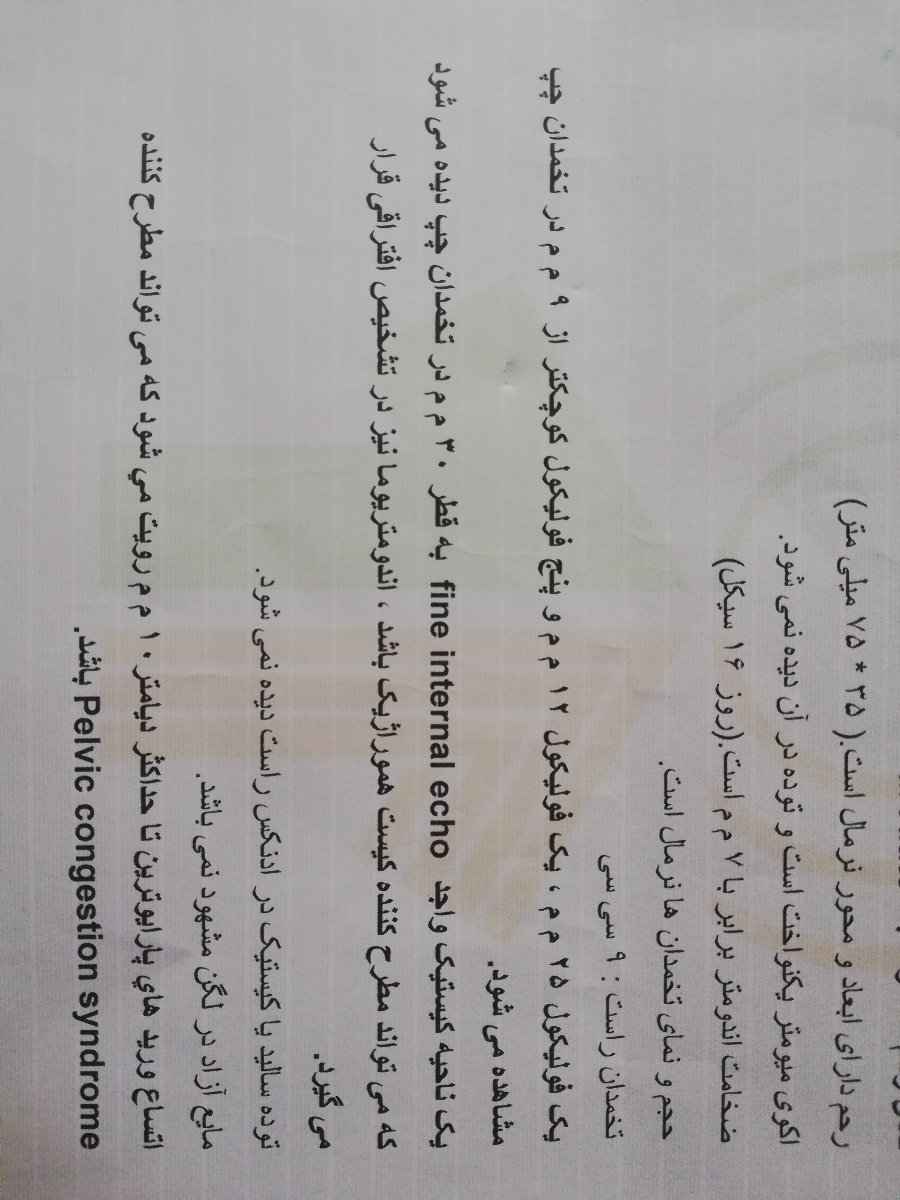 رحم دارای ابعاد و محور نرمال است.( ۳۵ * ۷۵ میلی متر)
اکوی میومتر یکنواخت است و توده در آن دیده نمی شود.
ضخامت اندومتر برابر با ۷ م م است.(روز ۱۶ سیکل)
حجم و نمای تخمدان ها نرمال است.
تخمدان راست : ۹ سی سی
یک فولیکول ۲۵ م م ، یک فولیکول ۱۲ م م و پنج فولیکول کوچکتر از ۹ م م در تخمدان چپ
مشاهده می شود.
یک ناحیه کیستیک واجد fine internal echo به قطر ۳۰ م م در تخمدان چپ دیده می شود
که می تواند مطرح کننده کیست هموراژیک باشد ، اندومتریوما نیز در تشخیص افتراقی قرار
می گیرد.
توده سالید یا کیستیک در ادنکس راست دیده نمی شود.
مایع آزاد در لگن مشهود نمی باشد.
اتساع ورید هاي پارایوترین تا حداکثر دیامتر ۱۰ م م رویت مي شود که می تواند مطرح کننده
Pelvic congestion syndrome باشد.